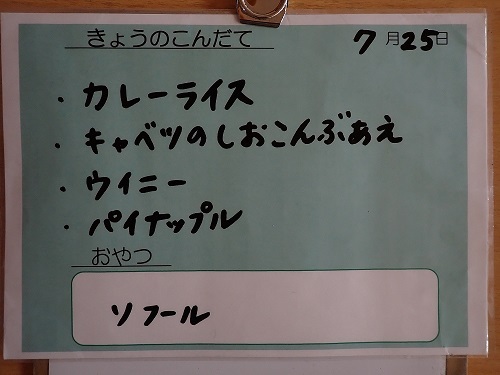 きょうのこんだて 7月25日
・カレーライス
・キャベツのしおこんぶあえ
・ウイニー
・パイナップル
おやつ
ソフール